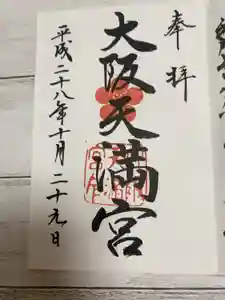 奉拝
大阪天満宮
平成二十八年十月二十九日